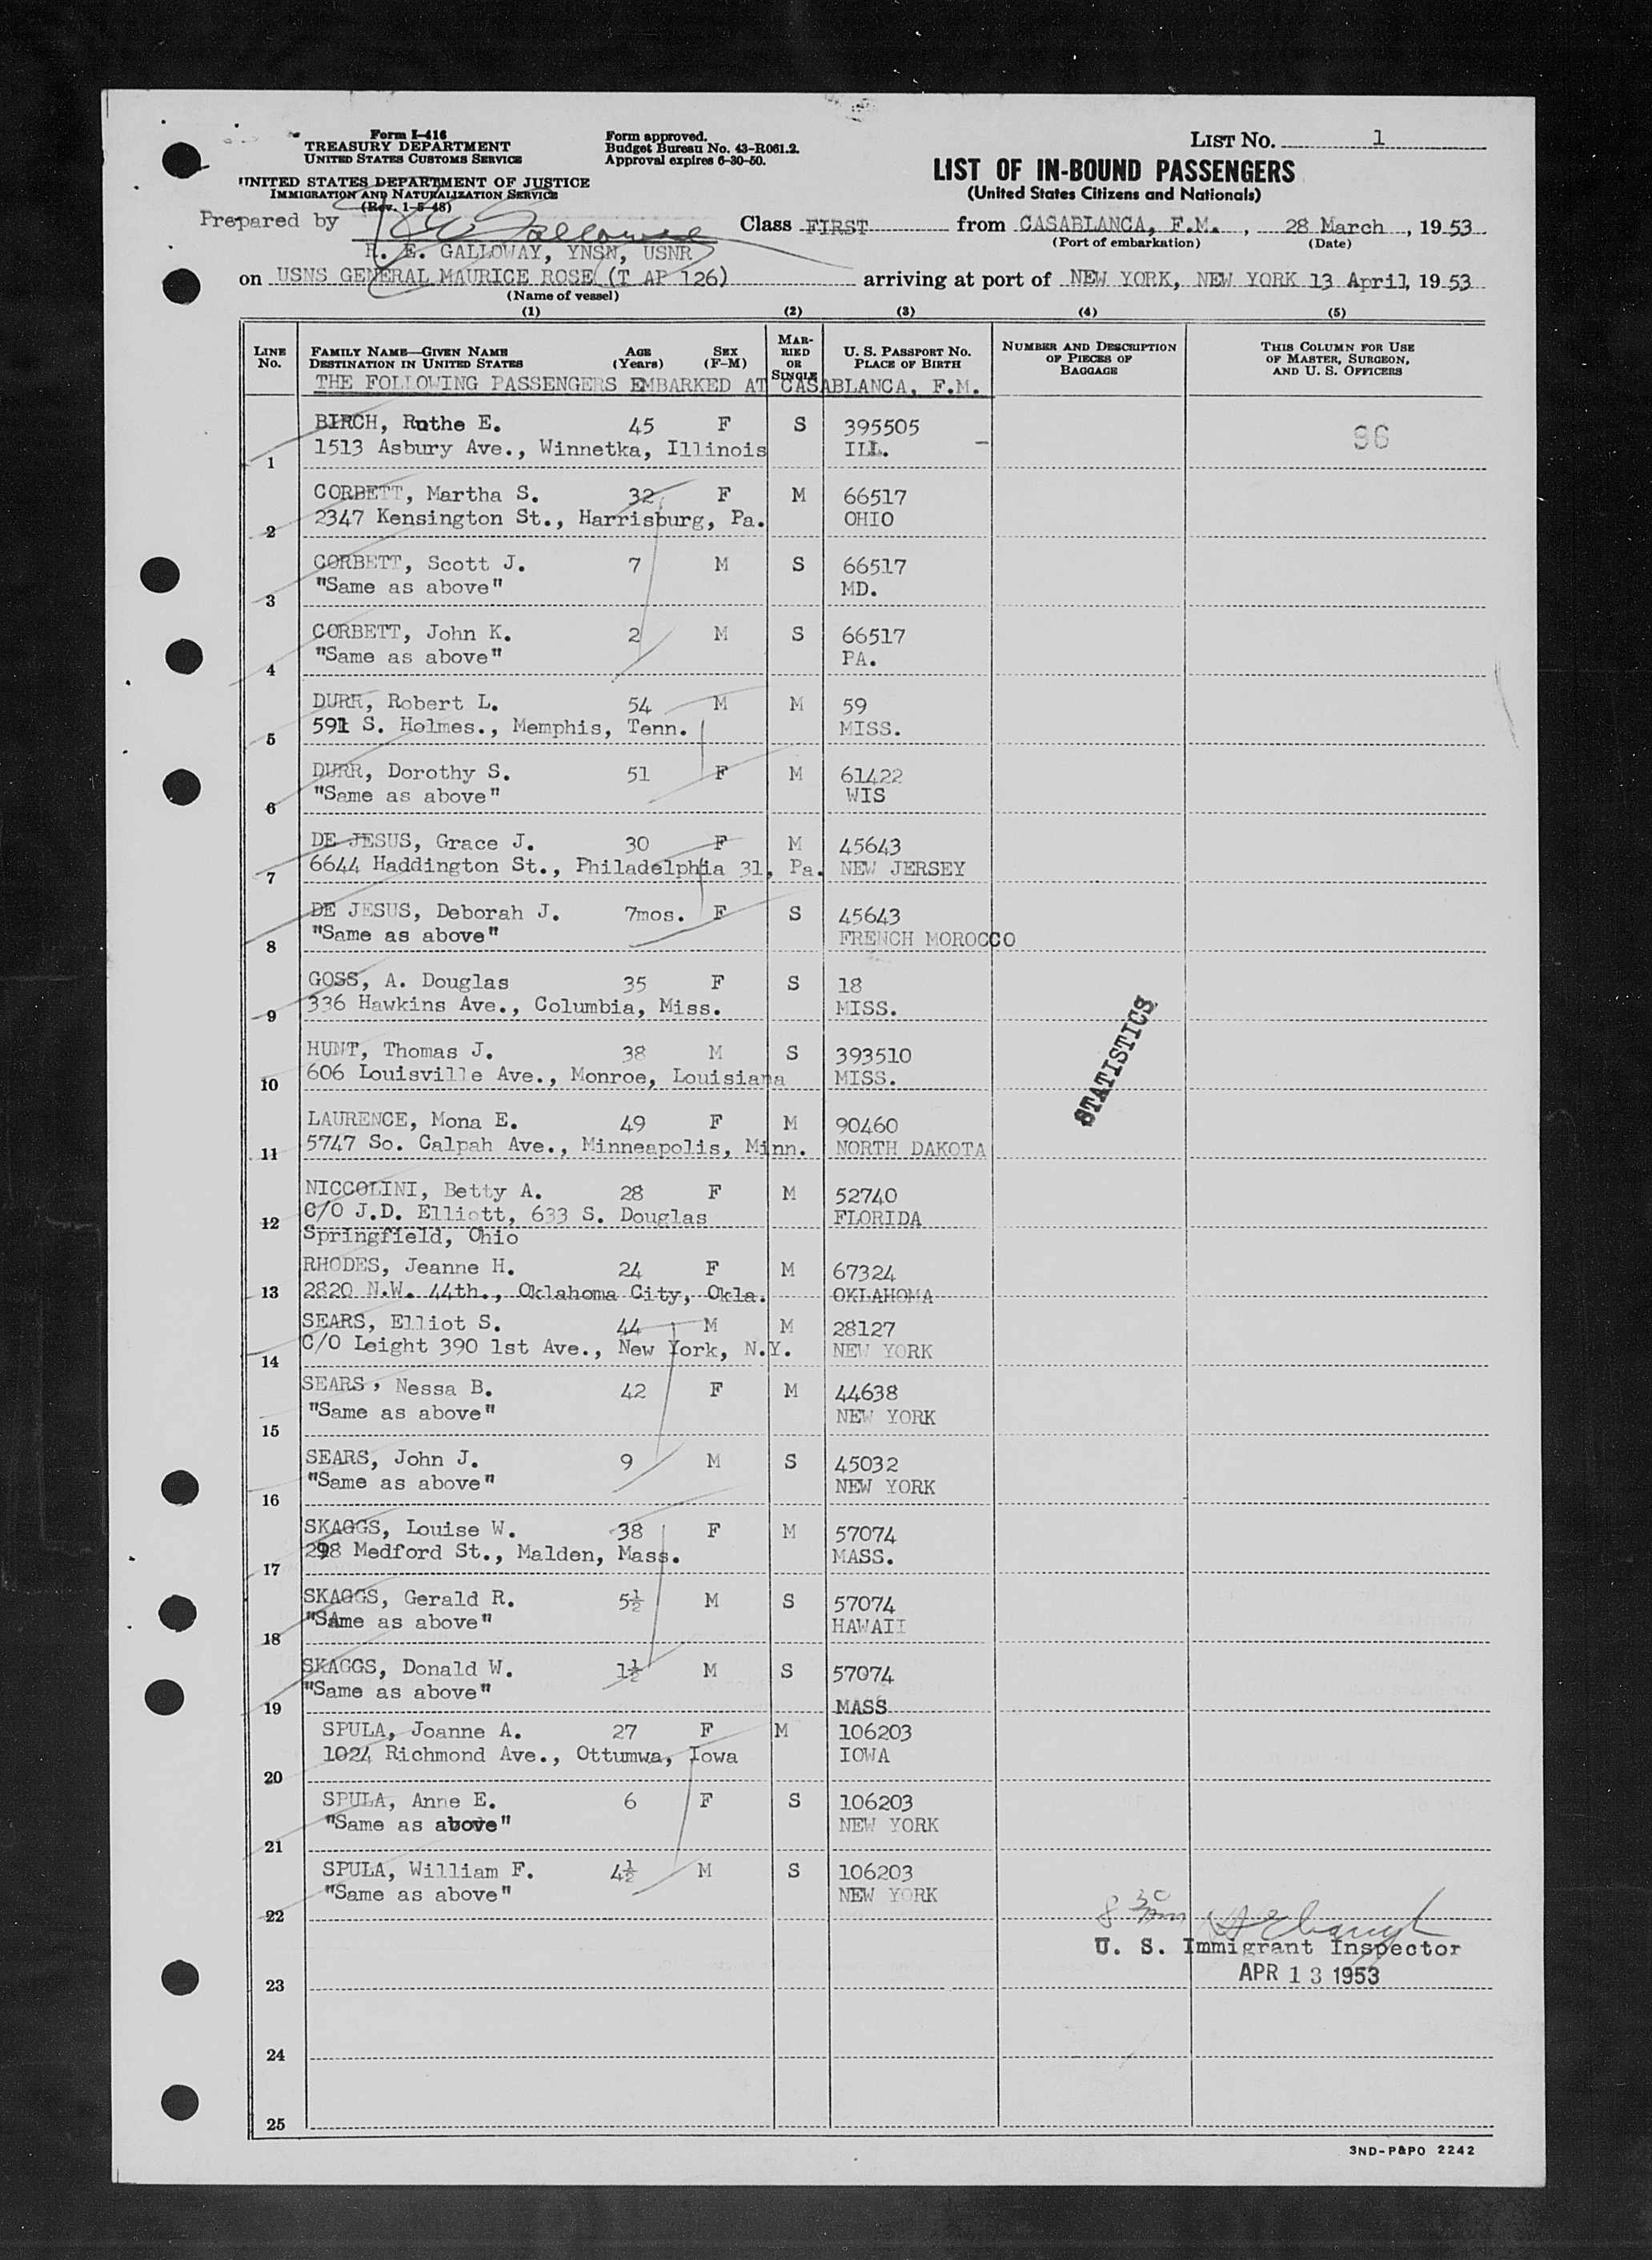 Form I-416
TREASURY DEPARTMENT
UNITED STATES CUSTOMS SERVICE
UNITED STATES DEPARTMENT OF JUSTICE
IMMIGRATION AND NATURALIZATION SERVICE
(Rev. 1-5-48)
Form approved.
Budget Bureau No. 43-R061.2.
Approval expires 6-30-50.
LIST NO. 1
LIST OF IN-BOUND PASSENGERS
(United States Citizens and Nationals)
Prepared by Galloway
R. E. GALLOWAY, YNSN, USNR
Class FIRST from CASABLANCA, F.M. , 28 March , 19 53
(Port of embarkation) (Date)
on USNS GENERAL MAURICE ROSE (T AP 126) arriving at port of NEW YORK, NEW YORK 13 April, 19 53
(Name of vessel)
(1) (2) (3) (4) (5)
LINE No. FAMILY NAME—GIVEN NAME DESTINATION IN UNITED STATES AGE (Years) SEX (F-M) MARRIED OR SINGLE U. S. PASSPORT NO. PLACE OF BIRTH NUMBER AND DESCRIPTION OF PIECES OF BAGGAGE THIS COLUMN FOR USE OF MASTER, SURGEON, AND U. S. OFFICERS
THE FOLLOWING PASSENGERS EMBARKED AT CASABLANCA, F.M.
BIRCH, Ruthe E. 45 F S 395505
1 1513 Asbury Ave., Winnetka, Illinois ILL. 96
CORBETT, Martha S. 32 F M 66517
2 2347 Kensington St., Harrisburg, Pa. OHIO
CORBETT, Scott J. 7 M S 66517
3 "Same as above" MD.
CORBETT, John K. 2 M S 66517
4 "Same as above" PA.
DURR, Robert L. 54 M M 59
5 591 S. Holmes., Memphis, Tenn. MISS.
DURR, Dorothy S. 51 F M 61422
6 "Same as above" WIS
DE JESUS, Grace J. 30 F M 45643
7 6644 Haddington St., Philadelphia 31, Pa. NEW JERSEY
DE JESUS, Deborah J. 7mos. F S 45643
8 "Same as above" FRENCH MOROCCO
GOSS, A. Douglas 35 F S 18
9 336 Hawkins Ave., Columbia, Miss. MISS.
HUNT, Thomas J. 38 M S 393510
10 606 Louisville Ave., Monroe, Louisiana MISS.
STATISTICS
LAURENCE, Mona E. 49 F M 90460
11 5747 So. Calpah Ave., Minneapolis, Minn. NORTH DAKOTA
NICCOLINI, Betty A. 28 F M 52740
12 C/O J.D. Elliott, 633 S. Douglas FLORIDA
Springfield, Ohio
RHODES, Jeanne H. 24 F M 67324
13 2820 N.W. 44th., Oklahoma City, Okla. OKLAHOMA
SEARS, Elliot S. 44 M M 28127
14 C/O Leight 390 1st Ave., New York, N.Y. NEW YORK
SEARS, Nessa B. 42 F M 44638
15 "Same as above" NEW YORK
SEARS, John J. 9 M S 45032
16 "Same as above" NEW YORK
SKAGGS, Louise W. 38 F M 57074
17 298 Medford St., Malden, Mass. MASS.
SKAGGS, Gerald R. 5½ M S 57074
18 "SAme as above" HAWAII
SKAGGS, Donald W. 1½ M S 57074
19 "Same as above" MASS
SPULA, Joanne A. 27 F M 106203
20 1024 Richmond Ave., Ottumwa, Iowa IOWA
SPULA, Anne E. 6 F S 106203
21 "Same as above" NEW YORK
SPULA, William F. 4½ M S 106203
22 "Same as above" NEW YORK
8 30
U. S. Immigrant Inspector
23 APR 13 1953
24
25
3ND-P&PO 2242